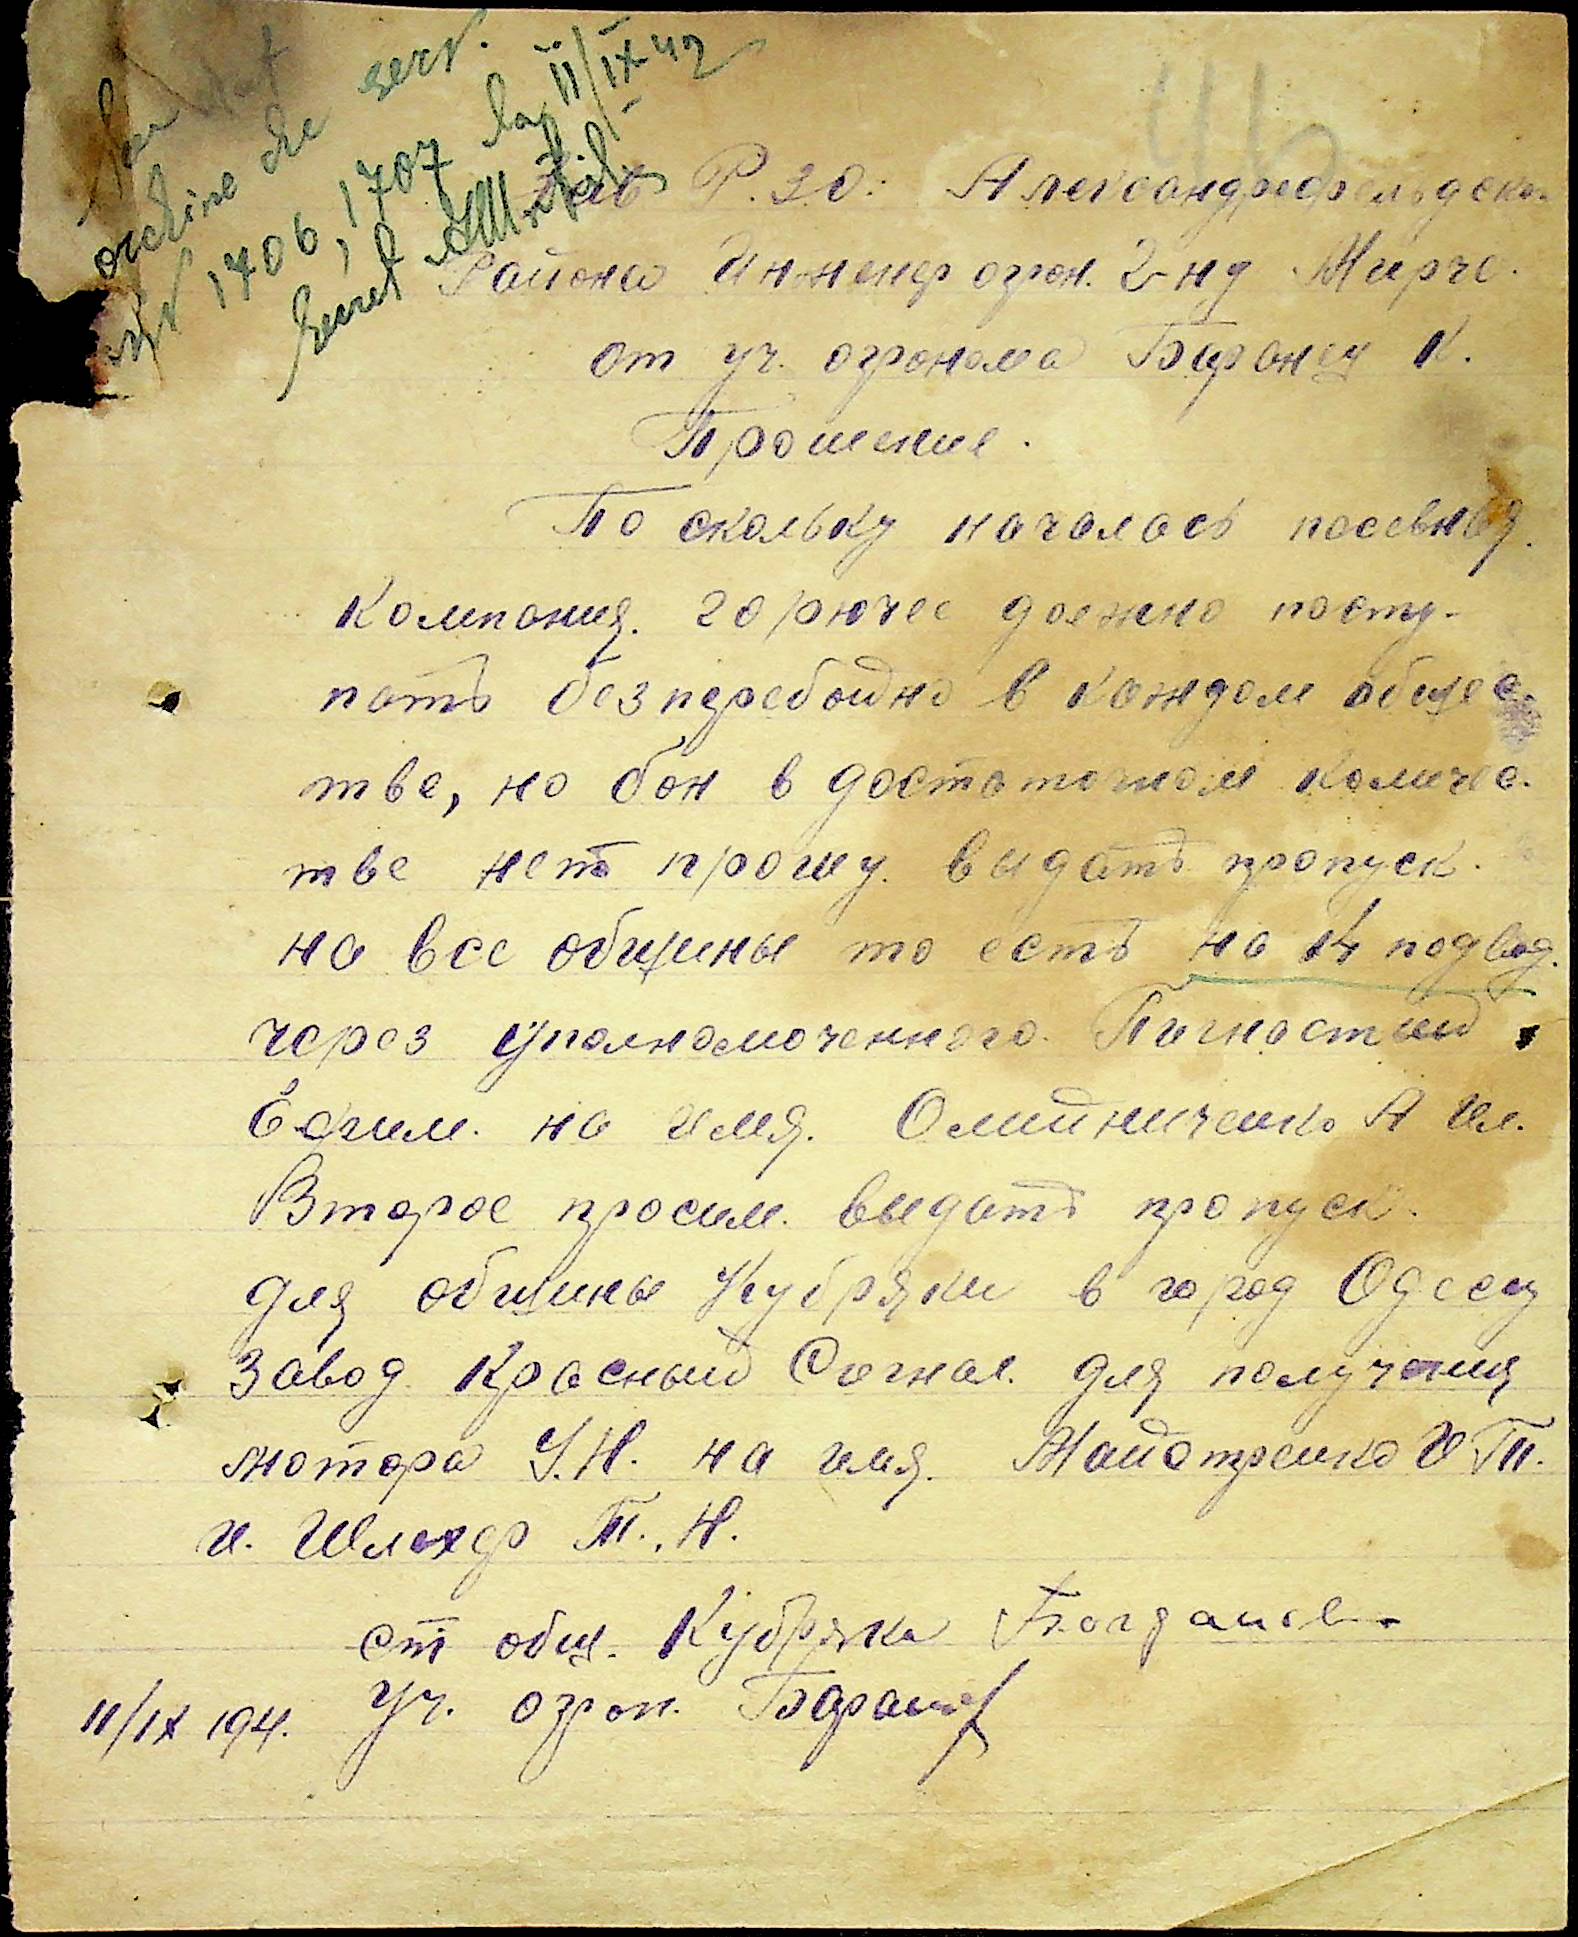 ordine de serv.
1706, 1707 la 11/IX 42
Secret
46
Зав Р.ЗО: Александрфельдско
Района Инженер огрон. 2-нд Мирче.
от уч. огронома Баронец К.
Прошение.
По скольку началась посевная
Компания. горючее должно посту-
пать безперебойно в каждом общес-
тве, но бон в достаточном количес-
тве нетъ прошу выдать пропуск.
на все общины то есть на 14 подвод.
через уполномоченного.
Ефим. на имя. А Ил.
Второе просим. выдать пропуск.
для общины Кубряки в город Одессу
Завод Красный Сигнал. для получения
мотора У.Н. на имя. И П.
и. Шляхер Т. Н.
ст общ. Кубряка Богданов
Уч. огрон. Баронец
11/IX 194.